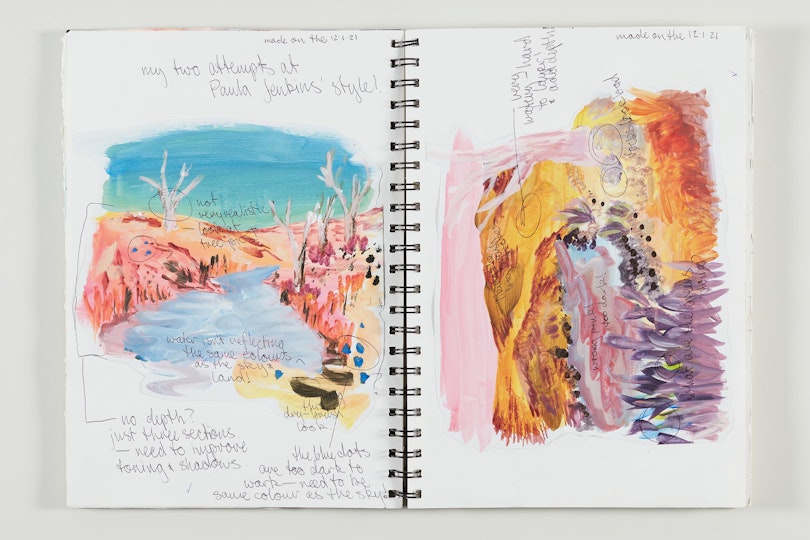 made on the 12.1.21
my two attempts at
Paula Jenkins' style!
not
very realistic
look at
tree
water isn't reflecting
the same colours
as the sky &
land!
no depth?
just three sections
— need to improve
toning & shadows
this
dry-brush
look
the blue dots
are too dark to
work — need to be
same colour as the sky
made on the 12.1.21
very hard
to layer
& add depth
too dark